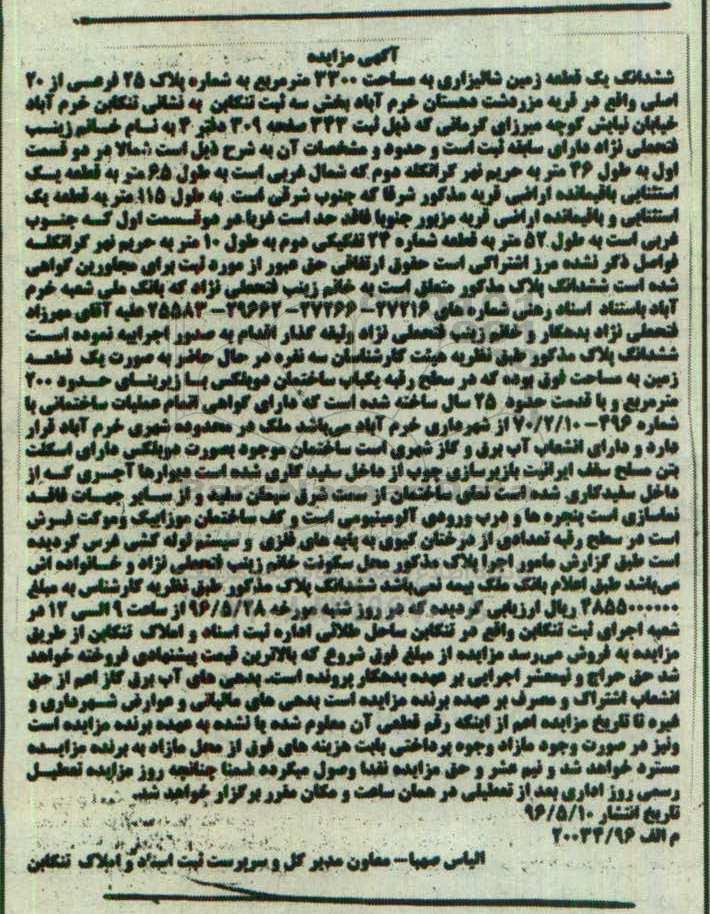 آگهی مزایده
ششدانگ یک قطعه زمین شالیزاری به مساحت ۳۳۰۰ مترمربع به شماره پلاک ۲۵ فرعی از ۲۰
اصلی واقع در قریه مزردشت دهستان خرم آباد بخش سه ثبت تنکابن به نشانی تنکابن خرم آباد
خیابان نیایش کوچه میرزای کرمانی که ذیل ثبت ۳۴۳ صفحه ۳۰۹ دفتر ۴ به نام خانم زینب
فتحعلی نژاد دارای سابقه ثبت است و حدود و مشخصات آن به شرح ذیل است شمالا در دو قسمت
اول به طول ۴۶ متر به حریم نهر کرانکله دوم که شمال غربی است به طول ۶٫۵ متر به قطعه یک
استثنایی باقیمانده اراضی قریه مذکور شرقا که جنوب شرقی است به طول ۱۱۵ متر به قطعه یک
استثنایی و باقیمانده اراضی قریه مزبور جنوبا فاقد حد است غربا در دوقسمت اول که جنوب
غربی است به طول ۵۲ متر به قطعه شماره ۲۴ تفکیکی دوم به طول ۱۰ متر به حریم نهر کرانکله
فواصل ذکر نشده مرز اشتراکی است حقوق ارتفاقی حق عبور از مورد ثبت برای مجاورین گواهی
شده است ششدانگ پلاک مذکور متعلق است به خانم زینب فتحعلی نژاد که بانک ملی شعبه خرم
آباد باستناد اسناد رهنی شماره های ۲۷۲۱۶- ۲۷۲۶۶- ۲۹۶۶۲- ۲۵۵۸۳ علیه آقای مهرزاد
فتحعلی نژاد بدهکار و خانم زینب فتحعلی نژاد وثیقه گذار اقدام به صدور اجراییه نموده است
ششدانگ پلاک مذکور طبق نظریه هیئت کارشناسان سه نفره در حال حاضر به صورت یک قطعه
زمین به مساحت فوق بوده که در سطح رقبه یکباب ساختمان دوبلکس با زیربنای حدود ۲۰۰
مترمربع و با قدمت حدود ۲۵ سال ساخته شده است که دارای گواهی اتمام عملیات ساختمانی با
شماره ۲۹۶-۷۰/۲/۱۰ از شهرداری خرم آباد می‌باشد ملک در محدوده شهری خرم آباد قرار
دارد و دارای انشعاب آب برق و گاز شهری است ساختمان موجود بصورت دوبلکس دارای اسکلت
بتن مسلح سقف ایرانیت بازیرسازی چوب از داخل سفید کاری شده است دیوارها آجری که از
داخل سفیدکاری شده است نمای ساختمان از سمت شرق سیمان سفید و از سایر جهات فاقد
نماسازی است پنجره ها و درب ورودی آلومینیومی است و کف ساختمان موزاییک وموکت فرش
است در سطح رقبه تعدادی از درختان کیوی به پایه های فلزی و سیستم لوله کشی غرس گردیده
است طبق گزارش مامور اجرا پلاک مذکور محل سکونت خانم زینب فتحعلی نژاد و خانواده اش
می‌باشد طبق اعلام بانک ملک بیمه نمی‌باشد ششدانگ پلاک مذکور طبق نظریه کارشناس به مبلغ
ریال ارزیابی گردیده که در روز شنبه مورخه ۹۶/۵/۲۸ از ساعت ۹ الی ۱۲ در
شعبه اجرای ثبت تنکابن واقع در تنکابن ساحل طلائی اداره ثبت اسناد و املاک تنکابن از طریق
مزایده به فروش می‌رسد مزایده از مبلغ فوق شروع که بالاترین قیمت پیشنهادی فروخته خواهد
شد حق حراج و نیمعشر اجرایی بر عهده بدهکار پرونده است. بدهی های آب برق گاز اعم از حق
انشعاب اشتراک و مصرف بر عهده برنده مزایده است بدهی های مالیاتی و عوارض شهرداری و
غیره تا تاریخ مزایده اعم از اینکه رقم قطعی آن معلوم شده یا نشده به عهده برنده مزایده است
ونیز در صورت وجود مازاد وجوه پرداختی بابت هزینه های فوق از محل مازاد به برنده مزایده
مسترد خواهد شد و نیم عشر و حق مزایده نقدا وصول میگردد ضمنا چنانچه روز مزایده تعطیل
رسمی روز اداری بعد از تعطیلی در همان ساعت و مکان مقرر برگزار خواهد شد.
تاریخ انتشار ۹۶/۵/۱۰
م الف ۲۰۰۳۴/۹۶
الیاس صهبا- معاون مدیر کل و سرپرست ثبت اسناد و املاک تنکابن